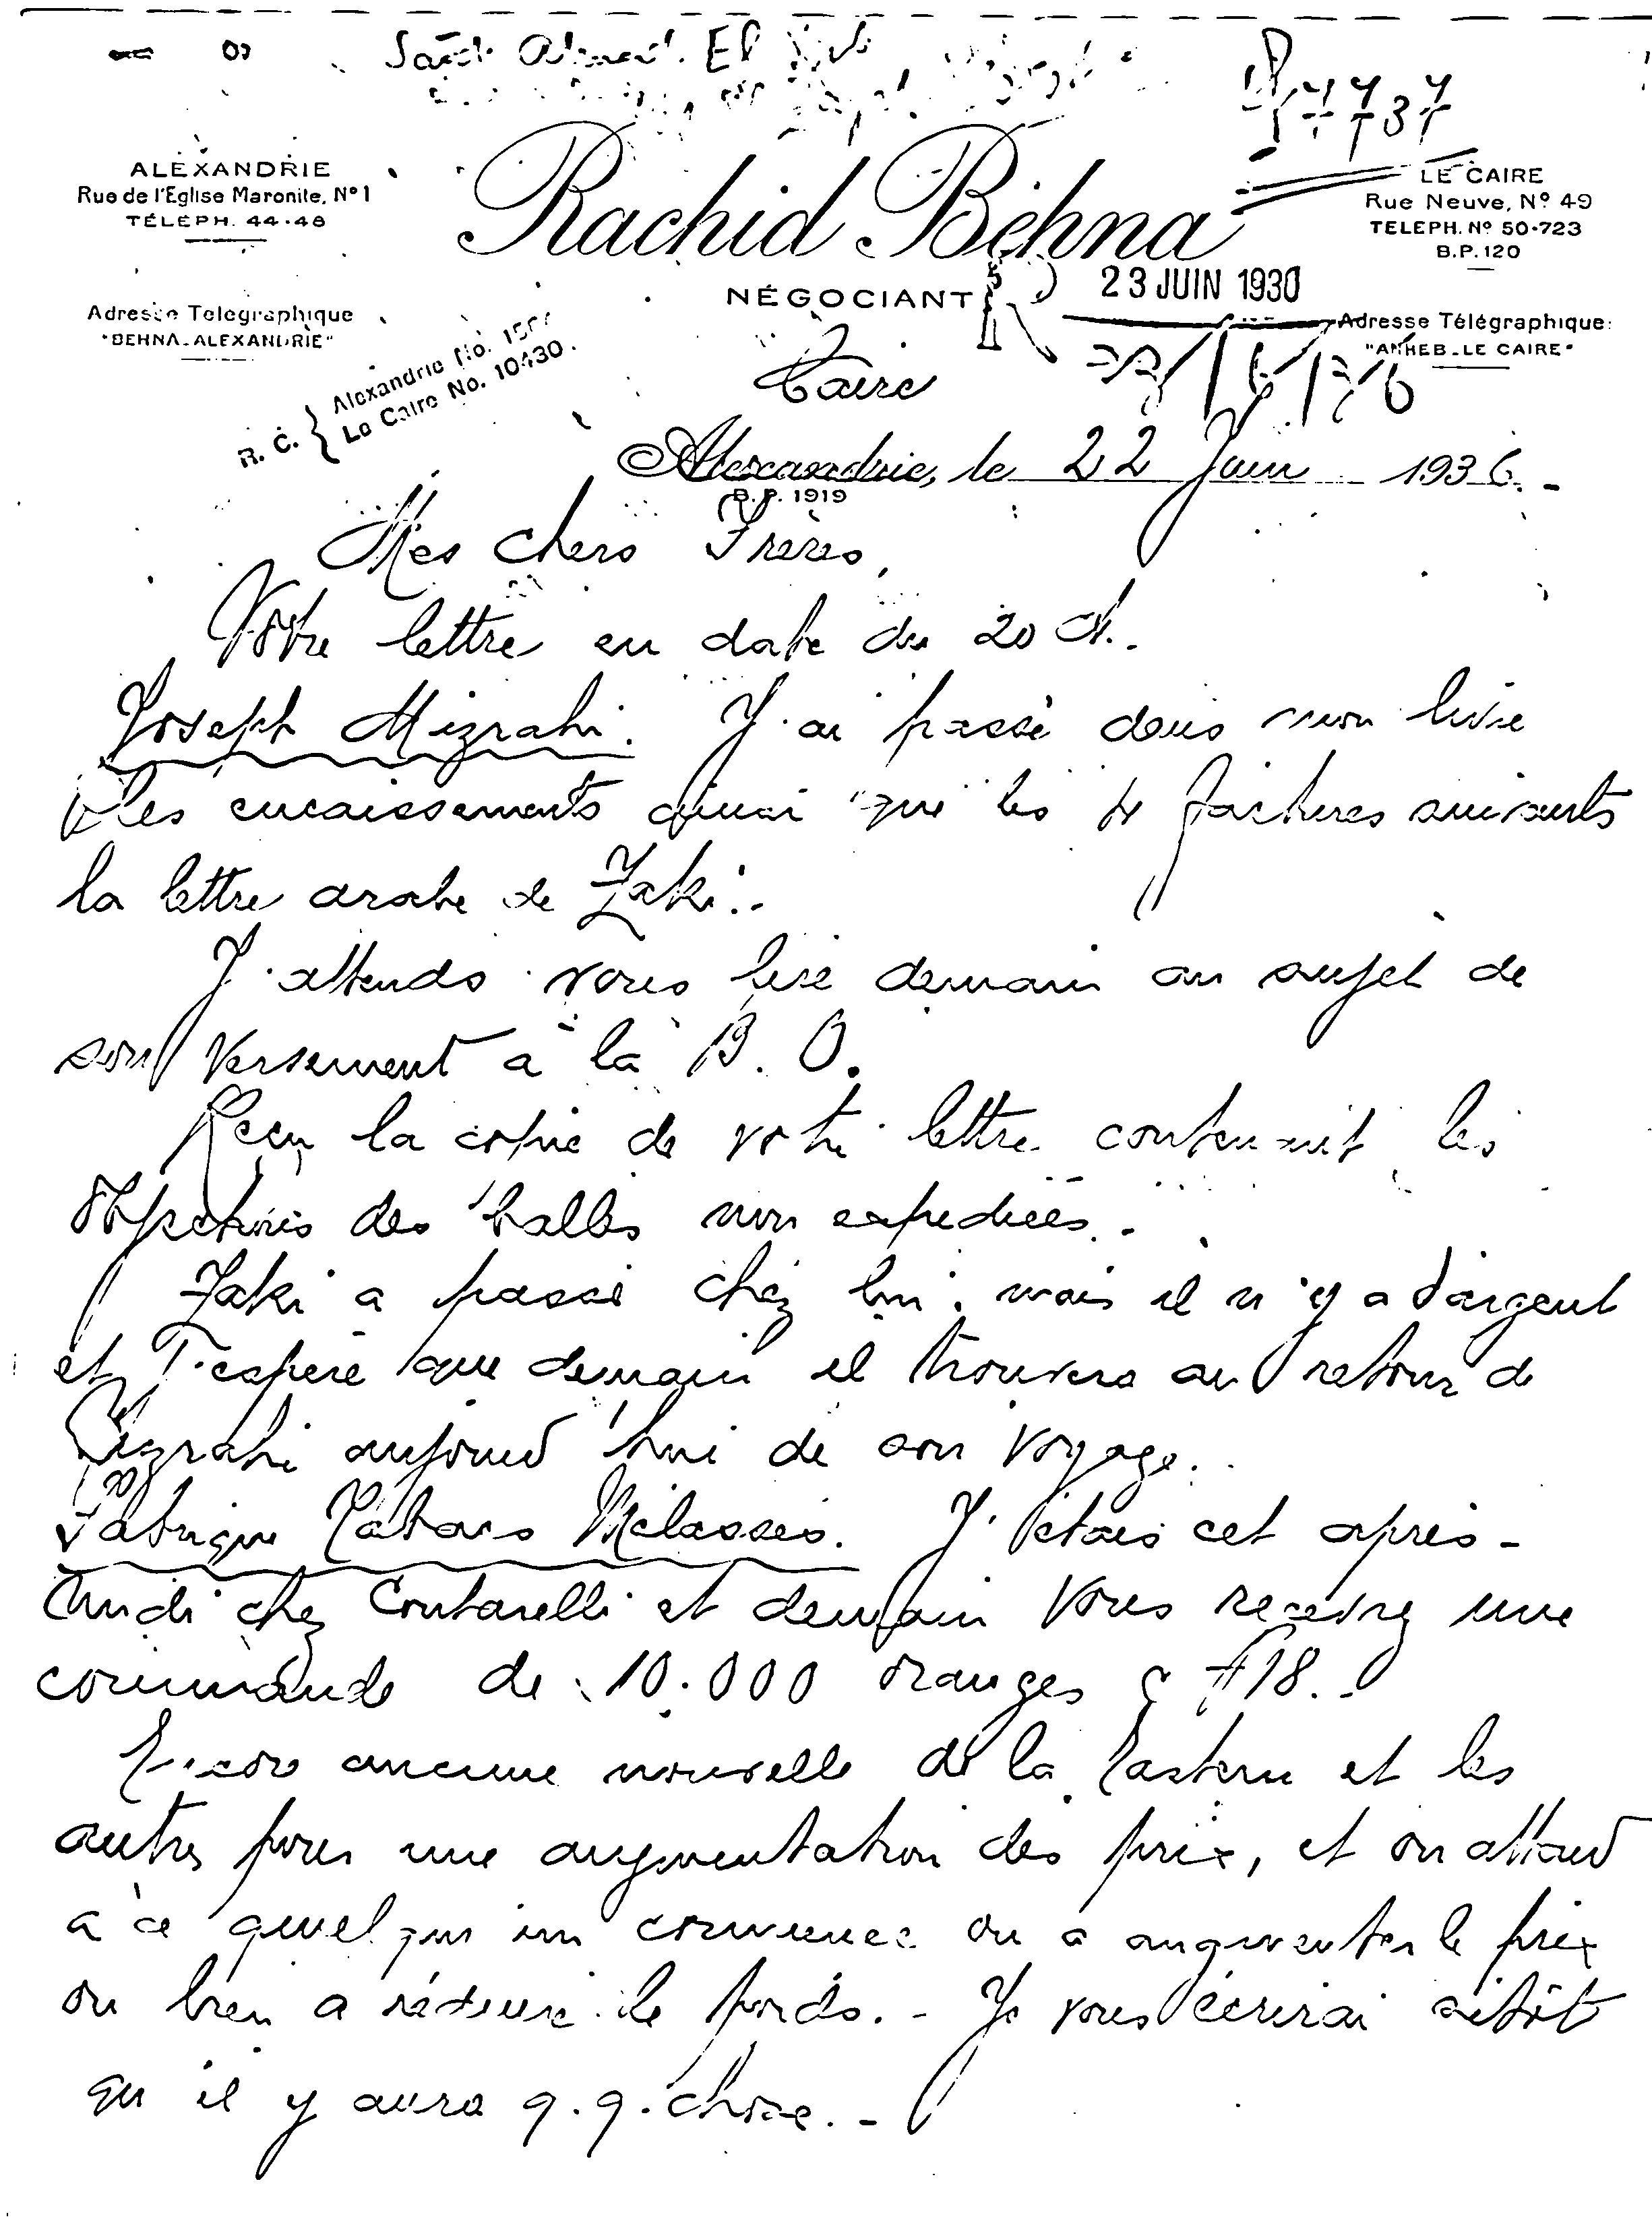 ALEXANDRIE
Rue de l'Eglise Maronite, Nº 1
TÉLÉPH. 44-48
Rachid Behna
LE CAIRE
Rue Neuve, Nº 49
TELEPH. Nº 50-723
B.P. 120
NÉGOCIANT
23 JUIN 1930
Adresse Telegraphique
"BEHNA-ALEXANDRIE"
Adresse Télégraphique:
"ANHEB-LE CAIRE"
R. C. { Alexandrie No.
Le Caire No. 10430.
Caire
Alexandrie, le 22 Juin 1936.-
B.P. 1919
Mes chers Frères,
Votre lettre en date du 20 ct.-
Joseph Mizrahi. J'ai passé dans mon livre
les encaissements ainsi que les 4 factures suivants
la lettre arabe de Zaki.-
J'attends vous lire demain au sujet de
son versement à la B. O.
Reçu la copie de votre lettre contenant les
objections des balles non expediées.-
Zaki a passé chez lui, mais il n'y a d'argent
et j'espère que demain il trouvera au retour de
Mizrahi aujourd'hui de son voyage.
Fabrique Tabacs Mélasses. J'étais cet après-
midi chez Coutarelli et demain vous recevrez une
commande de 10.000 oranges à £18.-
Encore aucune nouvelle de la Eastern et les
autres pour une augmentation des prix, et on attend
à ce quelqu'un commence ou à augmenter le prix
ou bien à réduire le poids.- Je vous écrirai sitôt
qu'il y aura q.q. chose.-